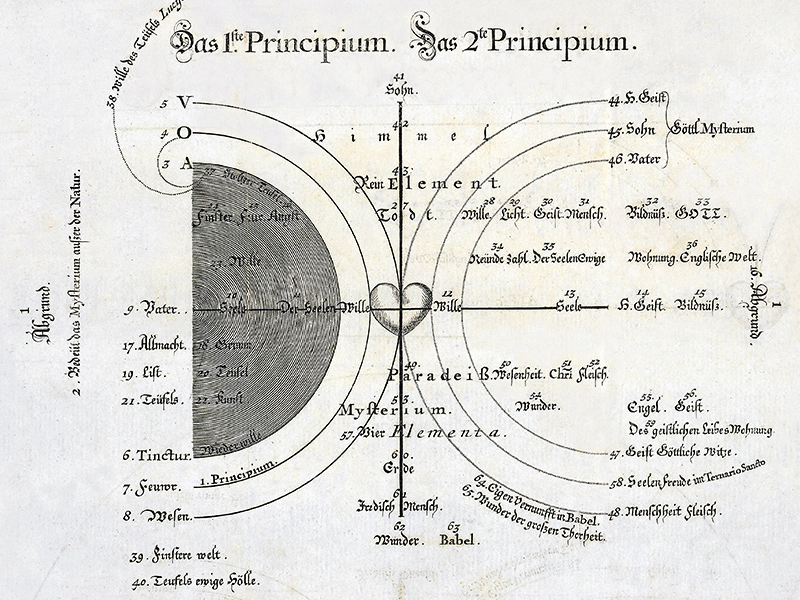 Das 1ste Principium. Das 2te Principium.
58. Wille des Teüfels Lucif
41
Sohn.
5 V
4 O
3 A
44. H. Geist
45. Sohn
46. Vater
Göttl Mysterium
42
Himmel
37. Teüfel
43
Rein Element.
27
Todt.
28 29 30 31 32 33
Wille. Licht. Geist. Mensch. Bildnüß. GOTT.
Finster Feür Angst
34 35 36
Neünde Zahl. Der Seelen Ewige Wohnung. Englische Welt.
23. Wille
1
Abgrund.
2. Bedeüt das Mysterium außer der Natur.
26. Abgrund.
1
10 11 12 13 14 15
9. Vater. Seele Der Seelen Wille Wille Seele H. Geist Bildnüß.
17. Allmacht. 18. Grimm
19. List. 20. Teüfel
21. Teüfels. 22. Kunst
49. 50 51 52
Paradeiß. Wesenheit. Chri Fleisch.
53. 54 55. 56.
Mysterium. Wunder. Engel. Geist.
59
Des geistlichen Leibes Wohnung.
57. Vier Elementa.
Wieder wille
6. Tinctur.
47. Geist Göttliche Witze.
60.
Erde
1. Principium.
7. Feuwr.
58. Seelen Freude in Ternario Sancto
61
Irdisch Mensch.
64. Eigen Vernunfft in Babel.
65. Wunder der großen Thorheit.
8. Wesen.
48. Menschheit Fleisch.
62 63
Wunder. Babel.
39. Finstere welt.
40. Teüfels ewige Hölle.